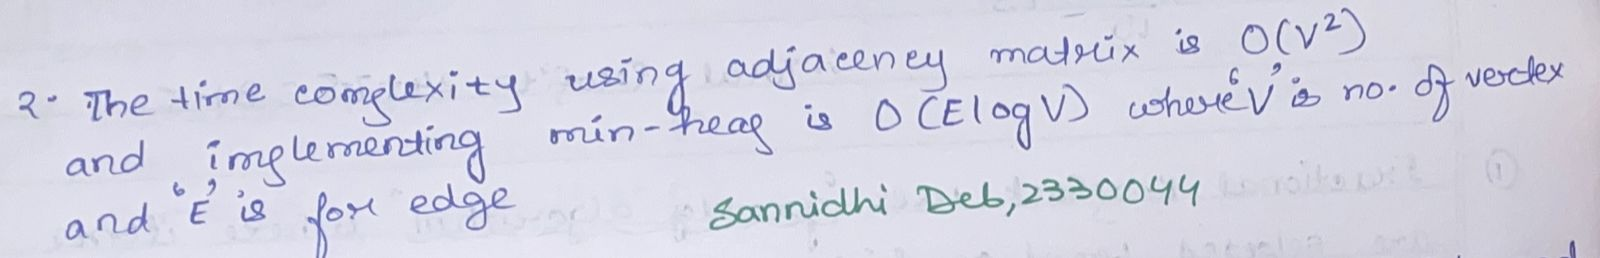 2. The time complexity using adjaceney matrix is O(V²)
and implementing min-heap is O(ElogV) where 'V' is no. of vertex
and 'E' is for edge
Sannidhi Deb, 2330044